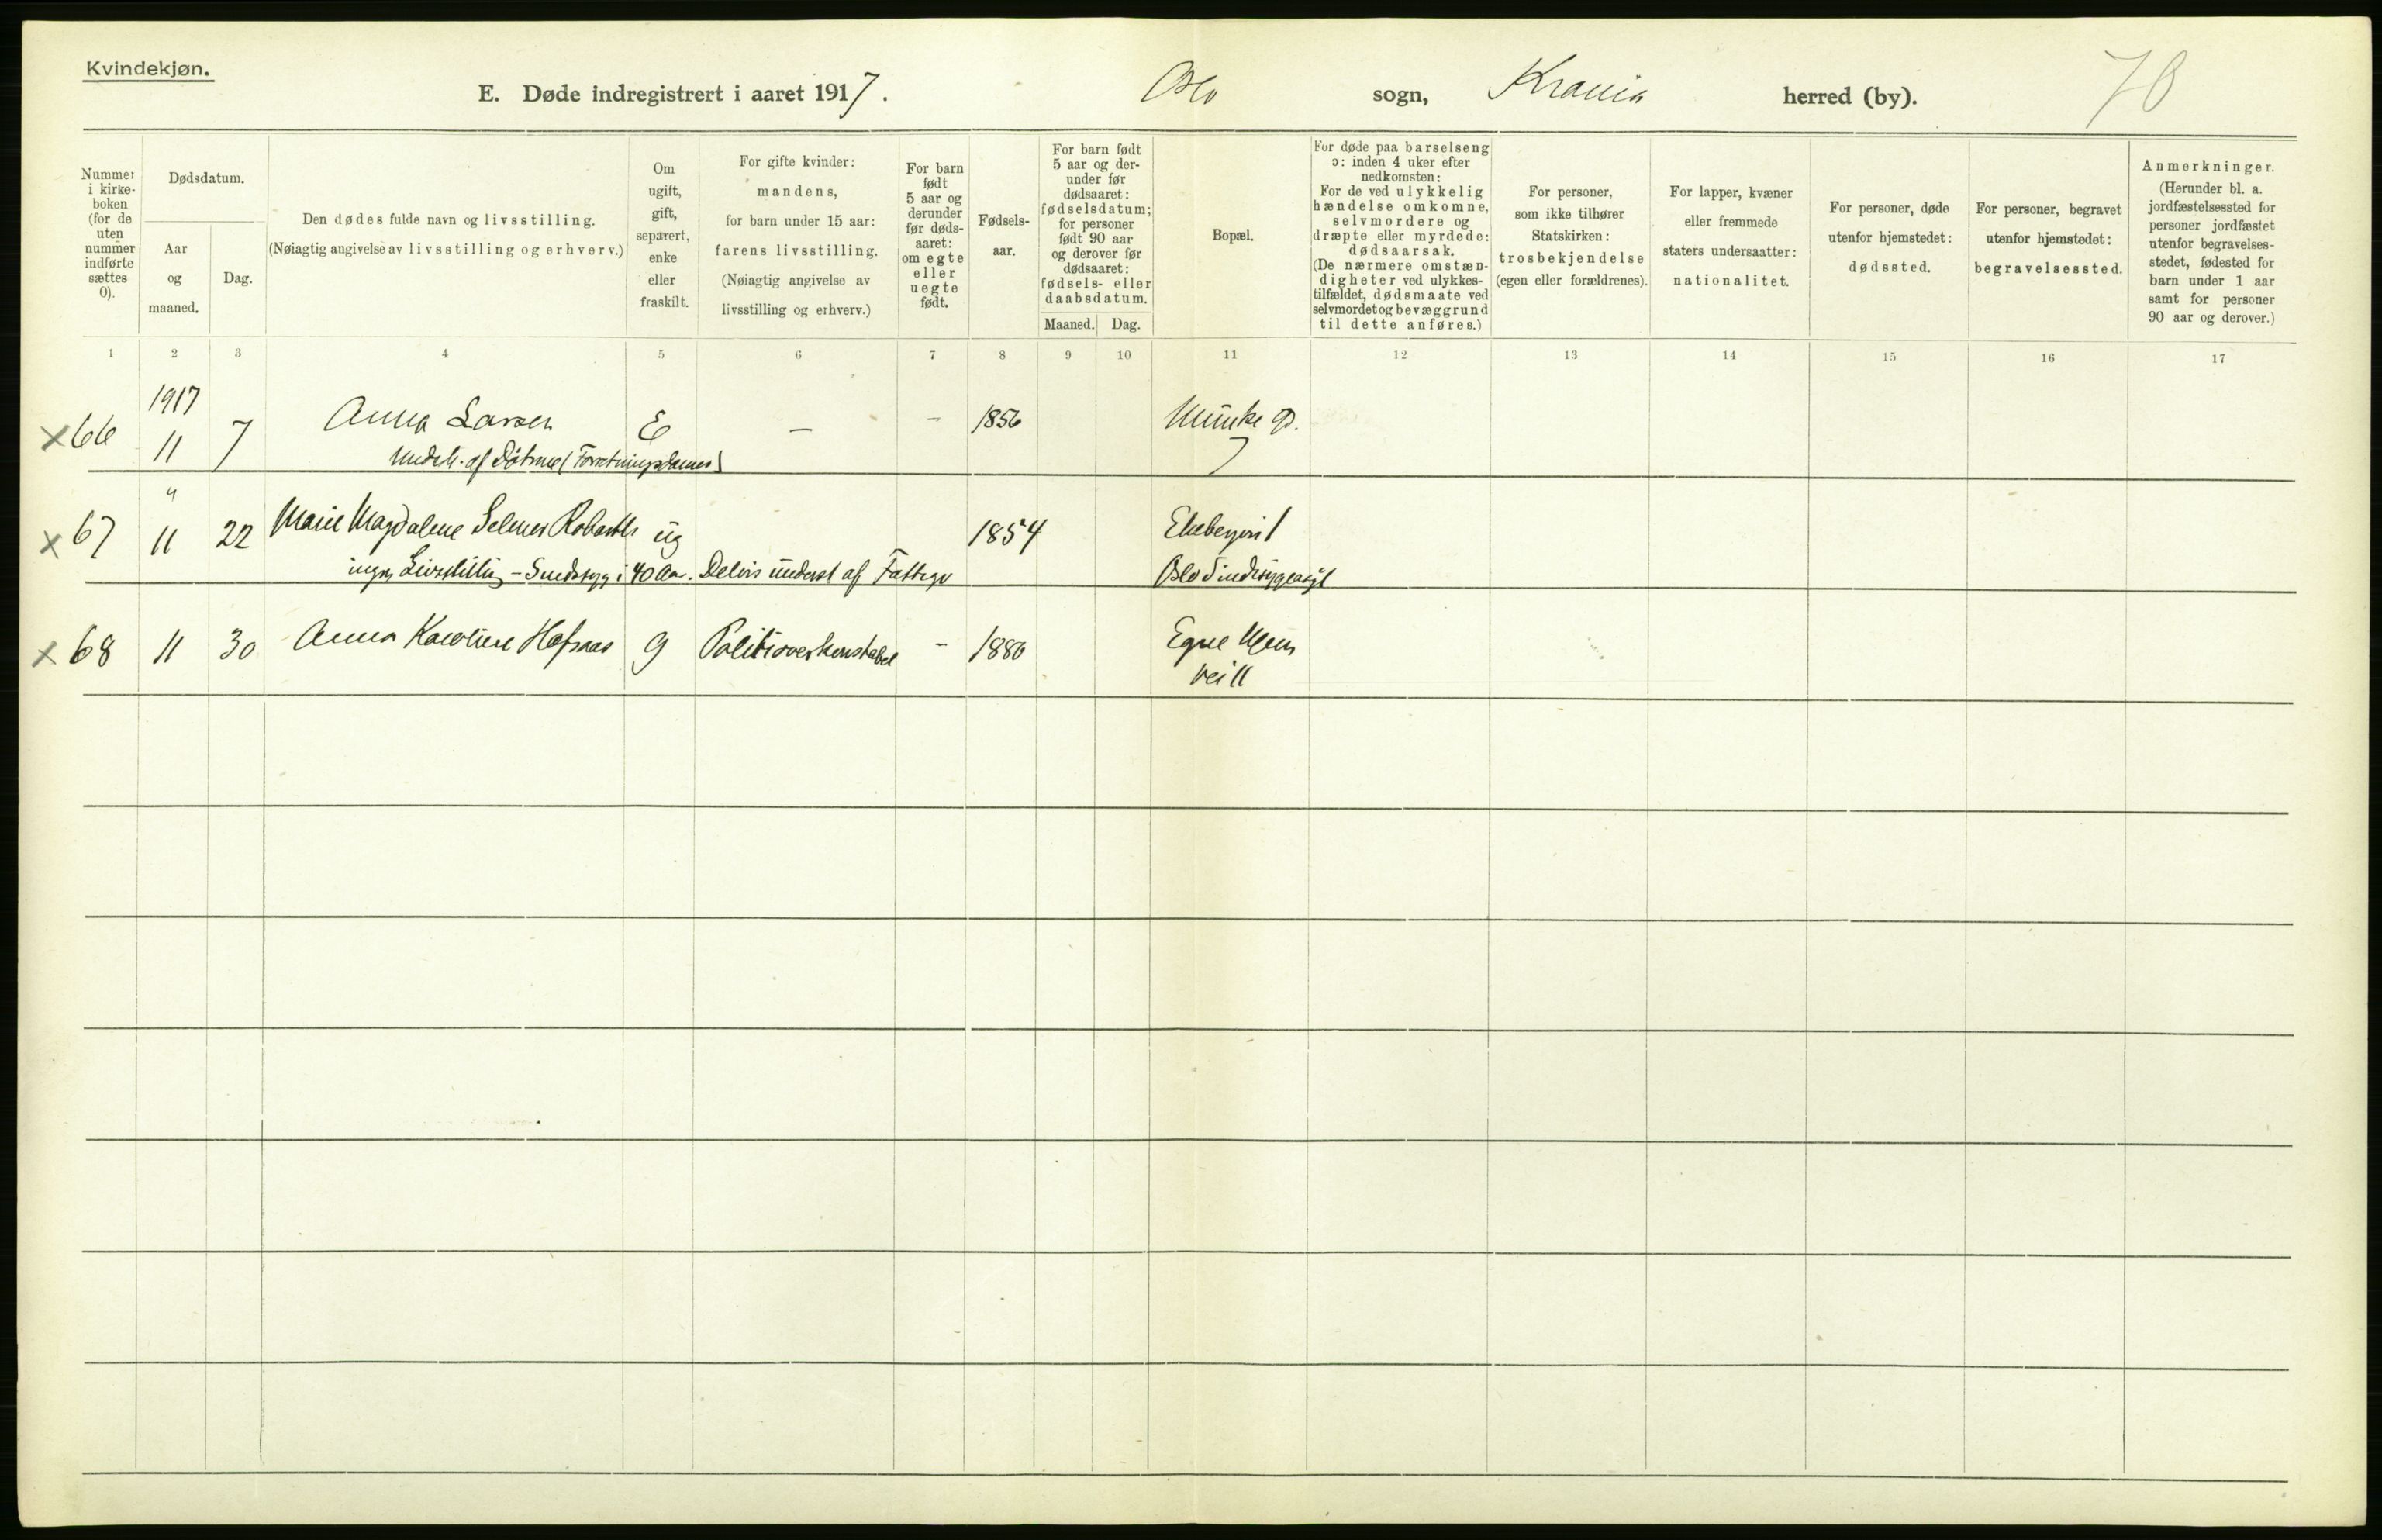 Kvindekjøn.
E. Døde indregistrert i aaret 1917.
Oslo sogn, Krania herred (by).
Nummer i kirke-boken (for de uten nummer indførte sættes 0).
Dødsdatum.
Aar og maaned.
Dag.
Den dødes fulde navn og livsstilling.
(Nøiagtig angivelse av livsstilling og erhverv.)
Om ugift, gift, separert, enke eller fraskilt.
For gifte kvinder:
mandens,
for barn under 15 aar:
farens livsstilling.
(Nøiagtig angivelse av
livsstilling og erhverv.)
For barn født 5 aar og derunder før døds-aaret: om egte eller uegte født.
Fødsels-
aar.
For barn født
5 aar og der-
under før
dødsaaret:
fødselsdatum;
for personer
født 90 aar
og derover før
dødsaaret:
fødsels- eller
daabsdatum.
Maaned. Dag.
Bopæl.
For døde paa barselseng
ɔ: inden 4 uker efter
nedkomsten:
For de ved ulykkelig
hændelse omkomne,
selvmordere og
dræpte eller myrdede:
dødsaarsak.
(De nærmere omstæn-
digheter ved ulykkes-
tilfældet, dødsmaate ved
selvmordet og bevæggrund
til dette anføres.)
For personer,
som ikke tilhører
Statskirken:
trosbekjendelse
(egen eller forældrenes).
For lapper, kvæner
eller fremmede
staters undersaatter:
nationalitet.
For personer, døde
utenfor hjemstedet:
dødssted.
For personer, begravet
utenfor hjemstedet:
begravelsessted.
Anmerkninger.
(Herunder bl. a.
jordfæstelsessted for
personer jordfæstet
utenfor begravelses-
stedet, fødested for
barn under 1 aar
samt for personer
90 aar og derover.)
1 2 3 4 5 6 7 8 9 10 11 12 13 14 15 16 17
1917
×66 11 7 Anna Larsen E — – 1856 Munke g.
7
Underh. af Døtrene (Forretningsdamer)
"
×67 11 22 Marie Magdalene Selmer ug 1854 Ekebergvei 1
ingen Livsstilling – Sindssyg i 40 Aar. Delvis underst af Fattigv Oslo Sindssygeasyl
×68 11 30 Anna Karoline Hofsaas g Politioverkonstabel – 1880 Egne Hjem
vei 11